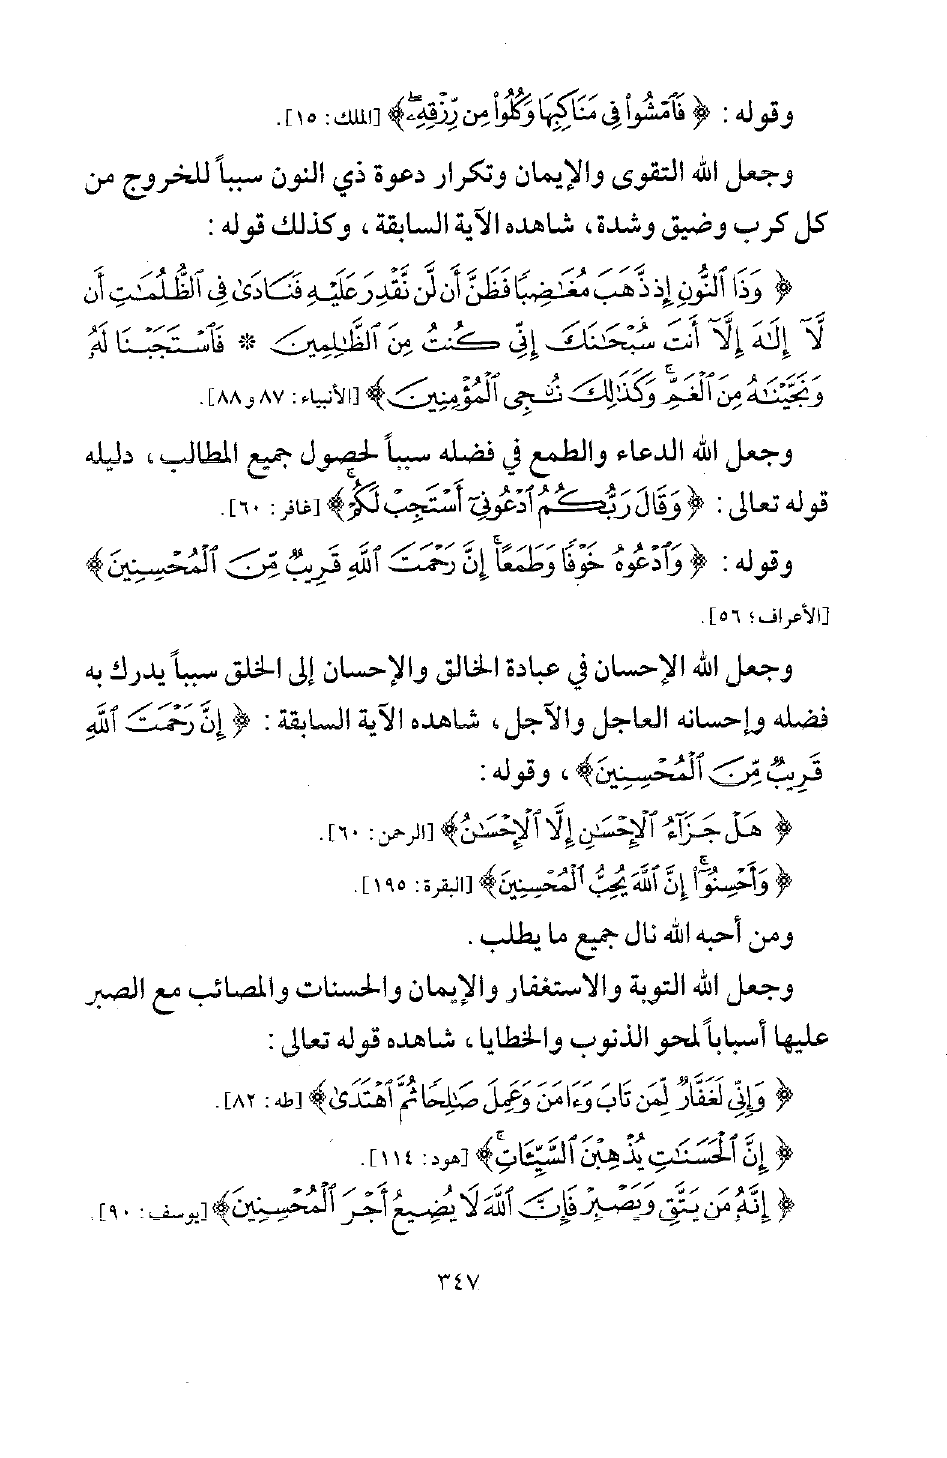 وقوله : ﴿ فَٱمْشُوا۟ فِى مَنَاكِبِهَا وَكُلُوا۟ مِن رِّزْقِهِۦۖ﴾ [الملك: ١٥].
وجعل الله التقوى والإيمان وتكرار دعوة ذي النون سبباً للخروج من
كل كرب وضيق وشدة، شاهده الآية السابقة، وكذلك قوله :
﴿ وَذَا ٱلنُّونِ إِذ ذَّهَبَ مُغَٰضِبًا فَظَنَّ أَن لَّن نَّقْدِرَ عَلَيْهِ فَنَادَىٰ فِى ٱلظُّلُمَٰتِ أَن
لَّآ إِلَٰهَ إِلَّآ أَنتَ سُبْحَٰنَكَ إِنِّى كُنتُ مِنَ ٱلظَّٰلِمِينَ * فَٱسْتَجَبْنَا لَهُۥ
وَنَجَّيْنَٰهُ مِنَ ٱلْغَمِّۚ وَكَذَٰلِكَ نُۨجِى ٱلْمُؤْمِنِينَ﴾ [الأنبياء: ٨٧ و٨٨].
وجعل الله الدعاء والطمع في فضله سبباً لحصول جميع المطالب، دليله
قوله تعالى : ﴿وَقَالَ رَبُّكُمُ ٱدْعُونِىٓ أَسْتَجِبْ لَكُمْۚ﴾ [غافر: ٦٠].
وقوله : ﴿ وَٱدْعُوهُ خَوْفًا وَطَمَعًاۚ إِنَّ رَحْمَتَ ٱللَّهِ قَرِيبٌ مِّنَ ٱلْمُحْسِنِينَ﴾
[الأعراف؛ ٥٦].
وجعل الله الإحسان في عبادة الخالق والإحسان إلى الخلق سبباً يدرك به
فضله وإحسانه العاجل والآجل، شاهده الآية السابقة : ﴿ إِنَّ رَحْمَتَ ٱللَّهِ
قَرِيبٌ مِّنَ ٱلْمُحْسِنِينَ﴾، وقوله :
﴿ هَلْ جَزَآءُ ٱلْإِحْسَٰنِ إِلَّا ٱلْإِحْسَٰنُ﴾ [الرحمن: ٦٠].
﴿ وَأَحْسِنُوٓا۟ۚ إِنَّ ٱللَّهَ يُحِبُّ ٱلْمُحْسِنِينَ﴾ [البقرة: ١٩٥].
ومن أحبه الله نال جميع ما يطلب.
وجعل الله التوبة والاستغفار والإيمان والحسنات والمصائب مع الصبر
عليها أسباباً لمحو الذنوب والخطايا، شاهده قوله تعالى :
﴿ وَإِنِّى لَغَفَّارٌ لِّمَن تَابَ وَءَامَنَ وَعَمِلَ صَٰلِحًا ثُمَّ ٱهْتَدَىٰ﴾ [طه: ٨٢].
﴿ إِنَّ ٱلْحَسَنَٰتِ يُذْهِبْنَ ٱلسَّيِّـَٔاتِۚ﴾ [هود: ١١٤].
﴿ إِنَّهُۥ مَن يَتَّقِ وَيَصْبِرْ فَإِنَّ ٱللَّهَ لَا يُضِيعُ أَجْرَ ٱلْمُحْسِنِينَ﴾ [يوسف: ٩٠].
٣٤٧